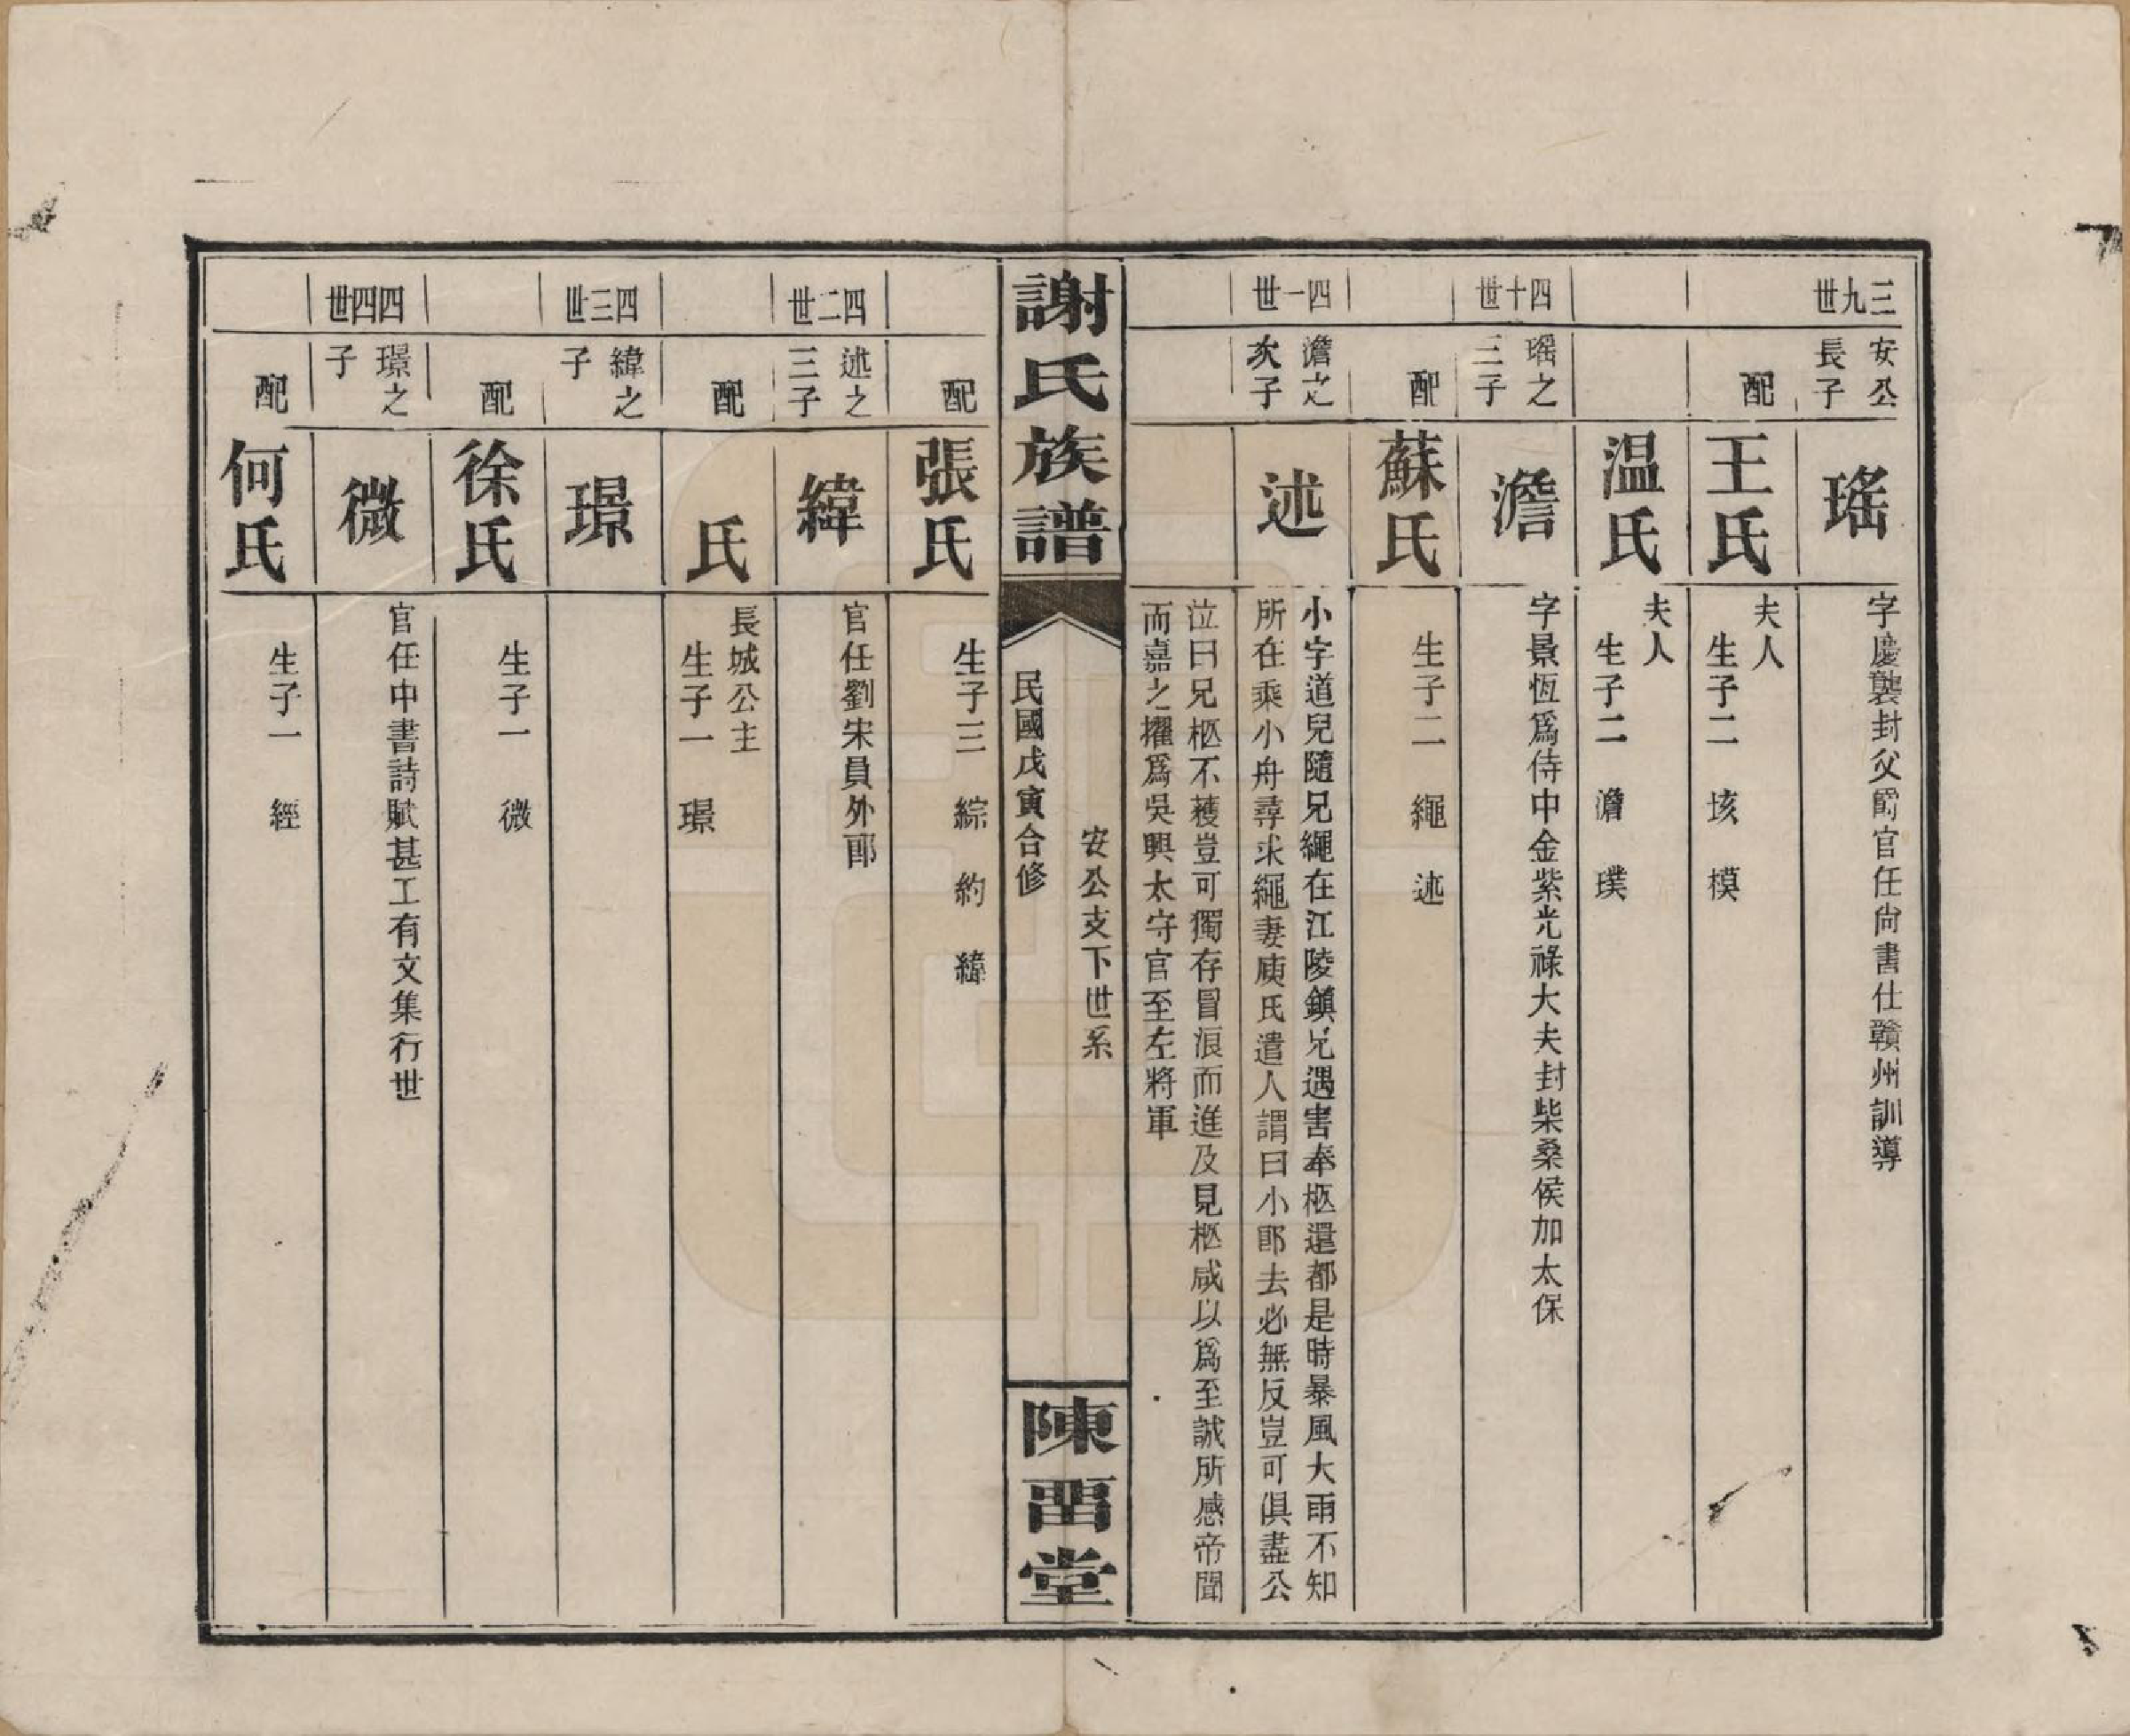 三九世
安公
長子
瑤
字慶襲封父爵官任尙書仕贛州訓導
配
王氏
夫人
生子二　垓　模
温氏
夫人
生子二　澹　璞
四十世
瑶之
三子
澹
字景恆爲侍中金紫光祿大夫封柴桑侯加太保
配
蘇氏
生子二　繩　述
四一世
澹之
次子
述
小字道兒隨兄繩在江陵鎮兄遇害奉柩還都是時暴風大雨不知
所在乘小舟尋求繩妻庾氏遣人謂曰小郎去必無反豈可俱盡公
泣曰兄柩不獲豈可獨存冒浪而進及見柩咸以爲至誠所感帝聞
而嘉之擢爲吳興太守官至左將軍
謝氏族譜
安公支下世系
民國戊寅合修
陳畱堂
配
張氏
生子三　綜　約　緯
四二世
述之
三子
緯
官任劉宋員外郎
配
氏
長城公主
生子一　璟
四三世
緯之
子
璟
配
徐氏
生子一　微
四四世
璟之
子
微
官任中書詩賦甚工有文集行世
配
何氏
生子一　經